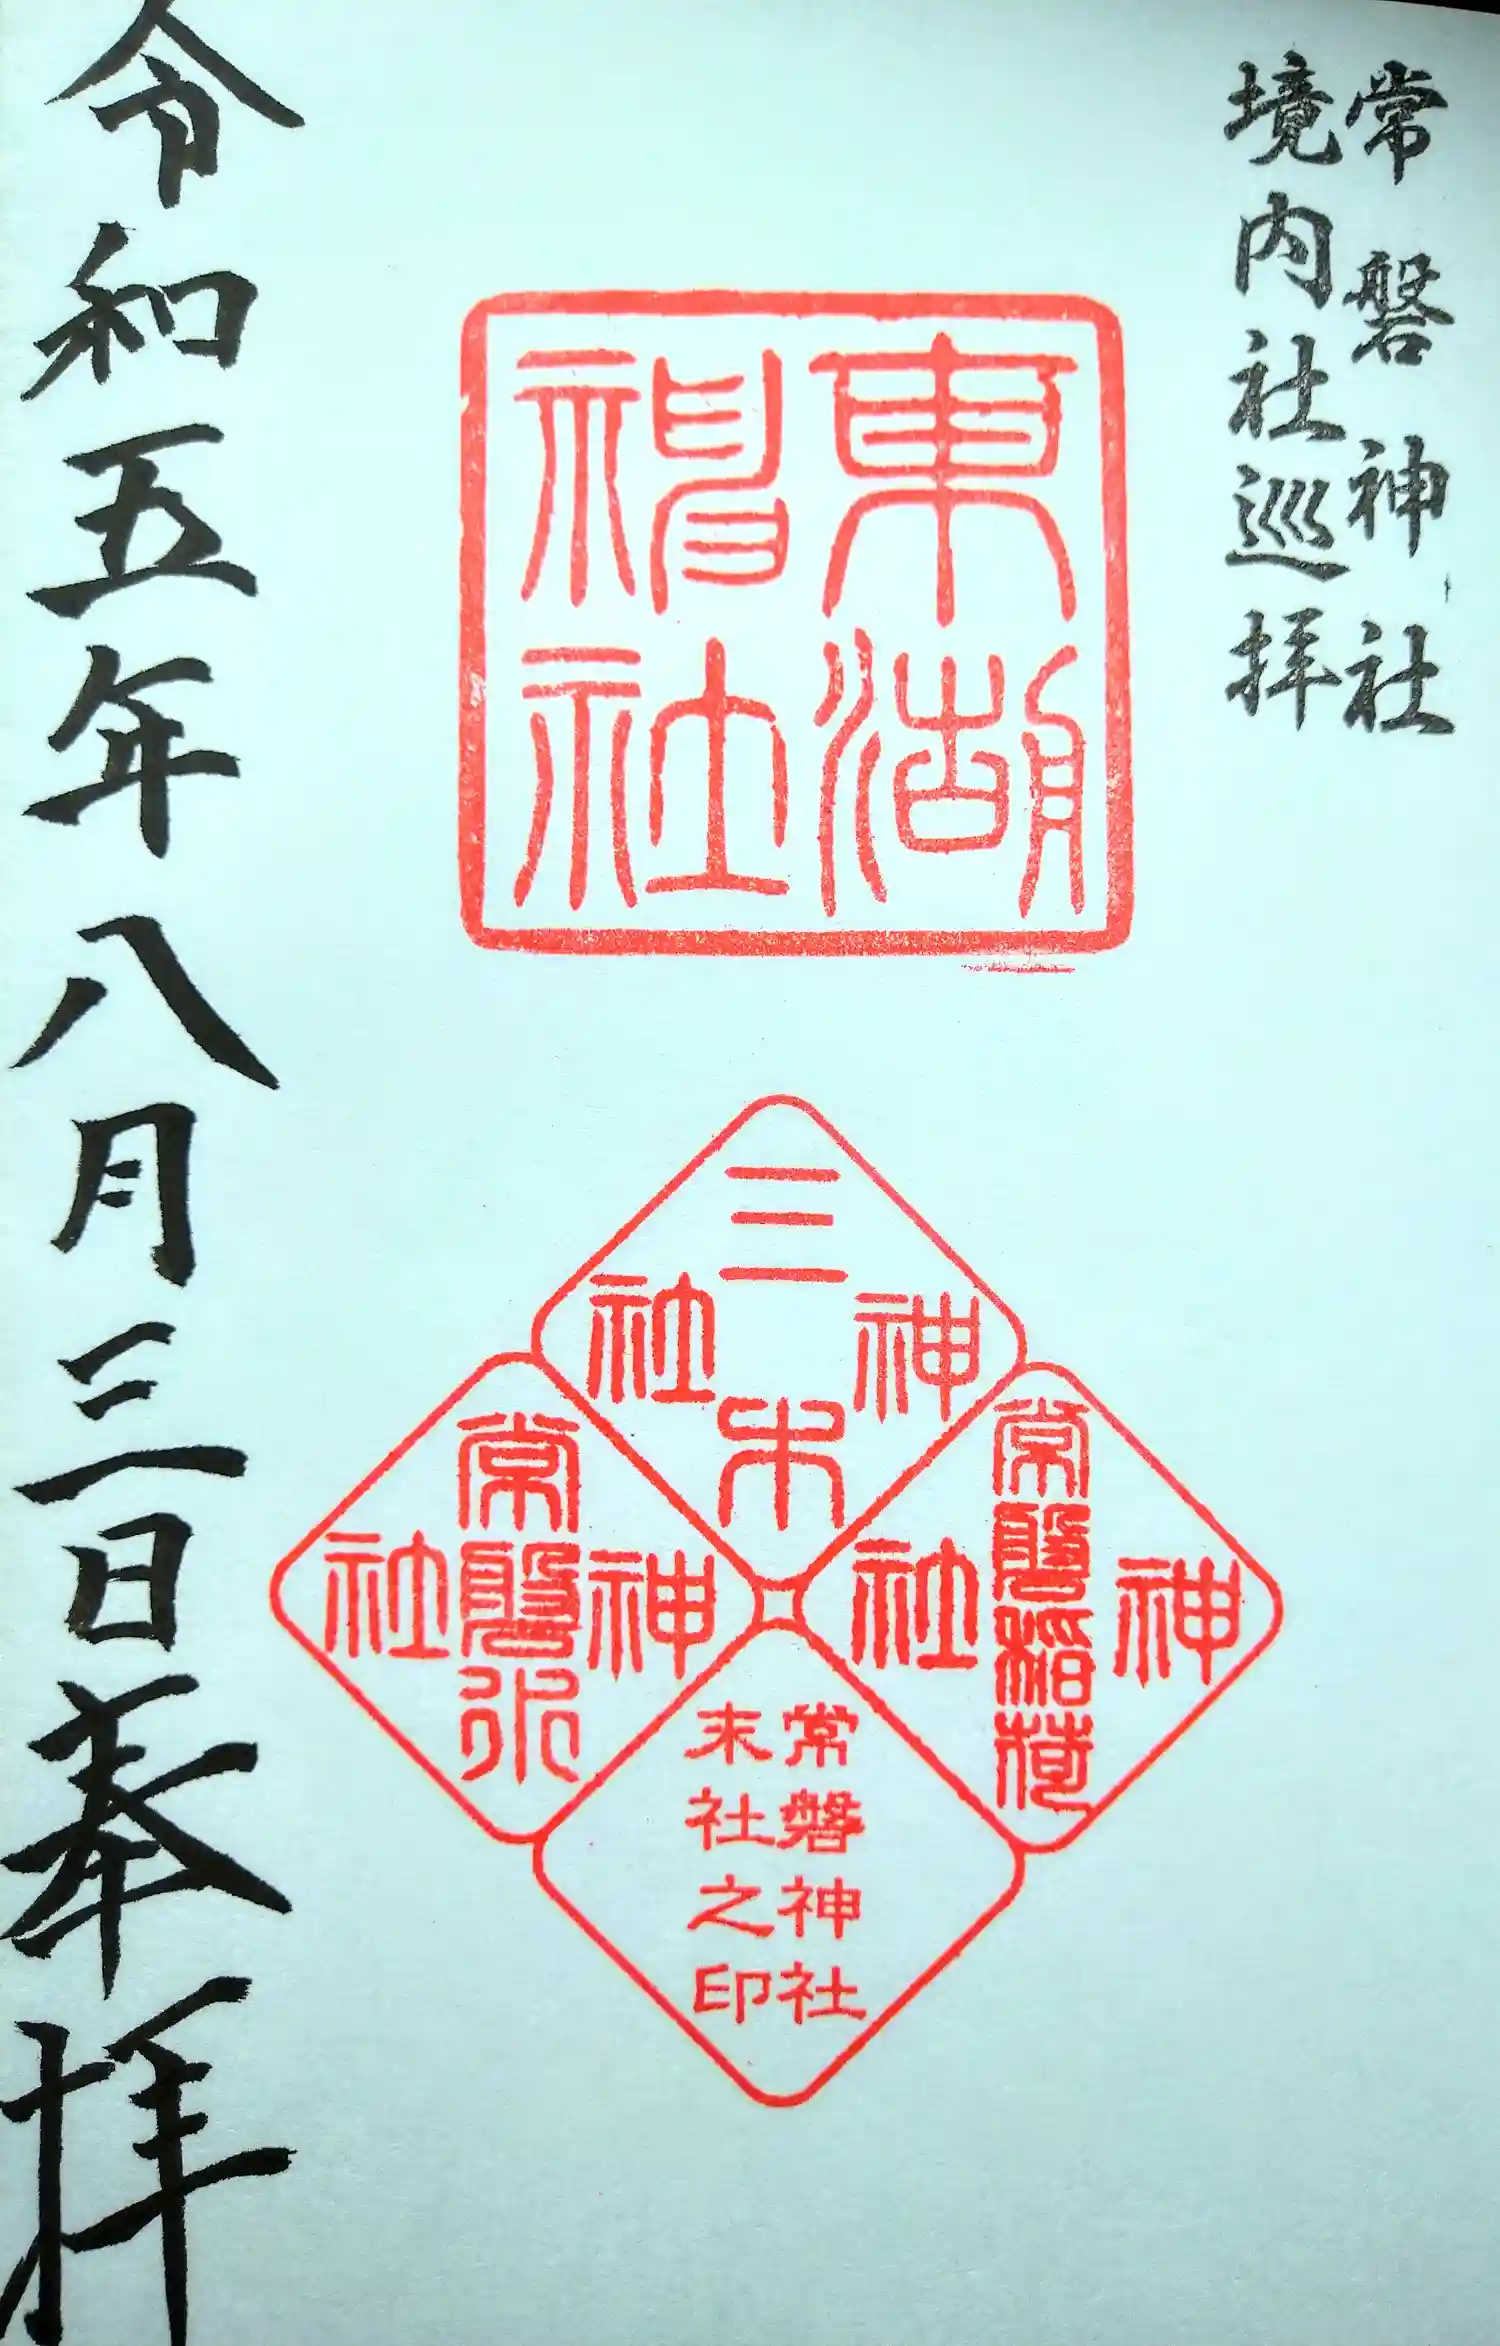 常磐神社
境内社巡拝
東湖
神社
三木
神社
常磐稲荷
神社
常磐水
神社
常磐神社
末社之印
令和五年八月三日奉拝